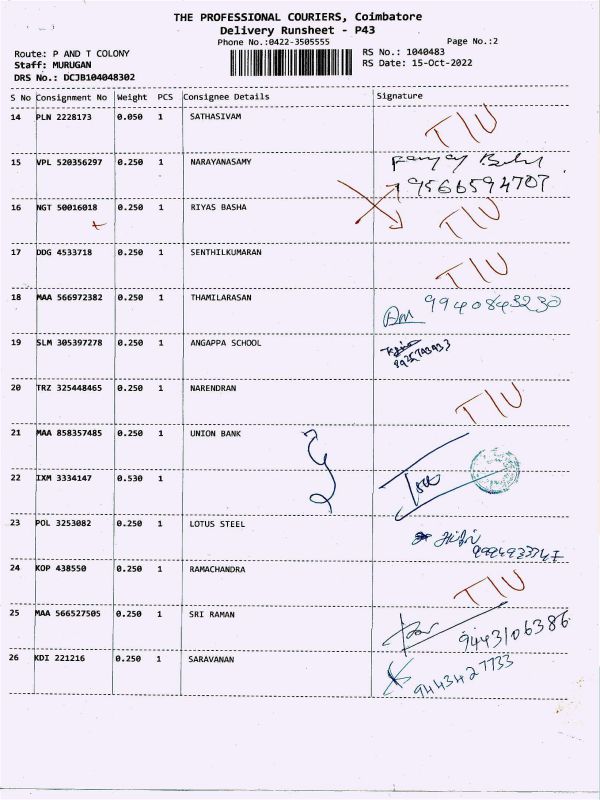 THE PROFESSIONAL COURIERS, Coimbatore
Delivery Runsheet - P43
Phone No.:0422-3505555 Page No.:2
Route: P AND T COLONY RS No.: 1040483
Staff: MURUGAN RS Date: 15-Oct-2022
DRS No.: DCJB104048302
S No Consignment No Weight PCS Consignee Details Signature
14 PLN 2228173 0.050 1 SATHASIVAM T/U
15 VPL 520356297 0.250 1 NARAYANASAMY
9566594707
16 NGT 50016018 0.250 1 RIYAS BASHA T/U
17 DDG 4533718 0.250 1 SENTHILKUMARAN T/U
18 MAA 566972382 0.250 1 THAMILARASAN 9940843230
19 SLM 305397278 0.250 1 ANGAPPA SCHOOL
20 TRZ 325448465 0.250 1 NARENDRAN T/U
21 MAA 858357485 0.250 1 UNION BANK
22 IXM 3334147 0.530 1
23 POL 3253082 0.250 1 LOTUS STEEL
24 KOP 438550 0.250 1 RAMACHANDRA T/U
25 MAA 566527505 0.250 1 SRI RAMAN 9443106386
26 KDI 221216 0.250 1 SARAVANAN 9443427733